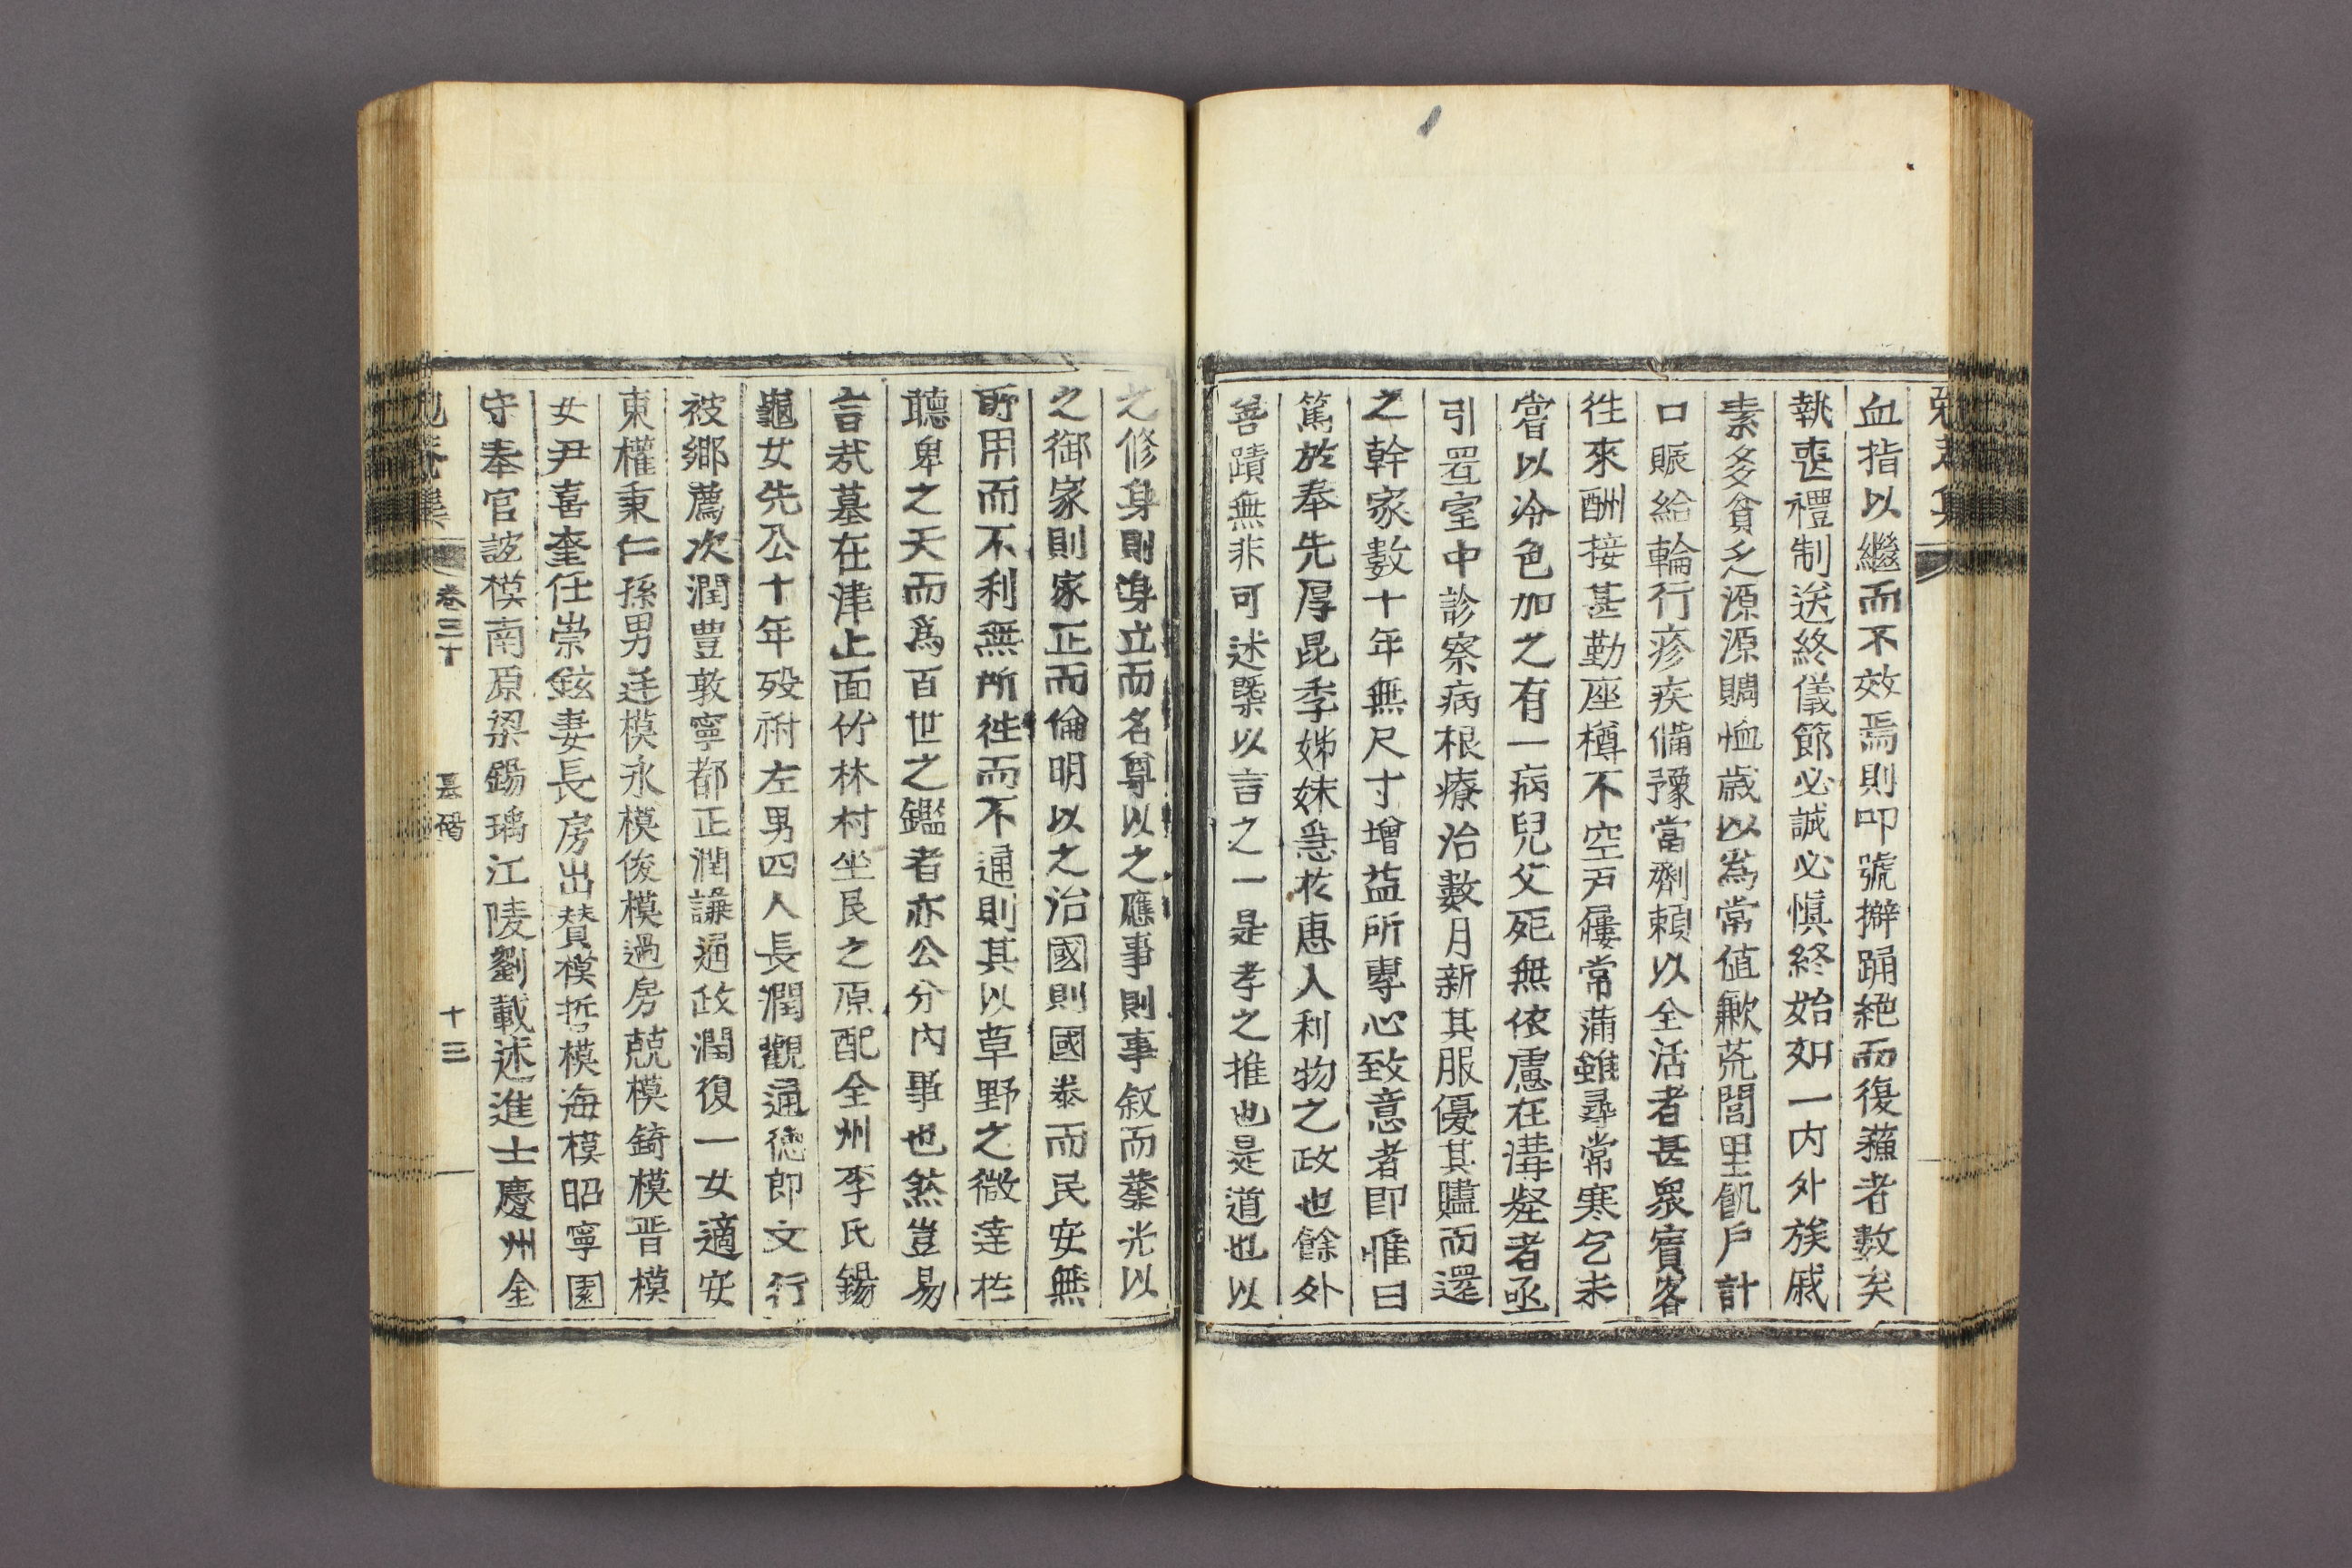 血指以繼而不效焉則叩號擗踊絕而復蘓者數矣
執喪禮制送終儀節必誠必愼終始如一內外族戚
素多貧乏源源賙恤歲以爲常値歉荒閭里飢戶計
口賑給輪行疹疾備豫當劑賴以全活者甚衆賓客
徃來酬接甚勤座樽不空戶屨常滿雖尋常寒乞未
嘗以冷色加之有一病兒父死無依慮在溝壑者亟
引置室中診察病根療治數月新其服優其贐而還
之幹家數十年無尺寸增益所專心致意者卽惟曰
篤於奉先厚昆季姊妹急於惠人利物之政也餘外
善蹟無非可述槩以言之一是孝之推也是道也以
之修身則身立而名尊以之應事則事叙而業光以
之御家則家正而倫明以之治國則國泰而民安無
所用而不利無所徃而不通則其以草野之微達於
聽卑之天而爲百世之鑑者亦公分內事也然豈易
言哉墓在津上面竹林村坐艮之原配全州李氏錫
龜女先公十年歿祔左男四人長潤觀通德郎文行
被鄕薦次潤豊敦寧都正潤謙通政潤復一女適安
東權秉仁孫男廷模永模俊模過房兢模錡模晋模
女尹喜奎任崇鉉妻長房出贊模哲模海模昭寧園
守奉官詖模南原梁錫瑀江陵劉載述進士慶州金
卷三十
墓碣
十三